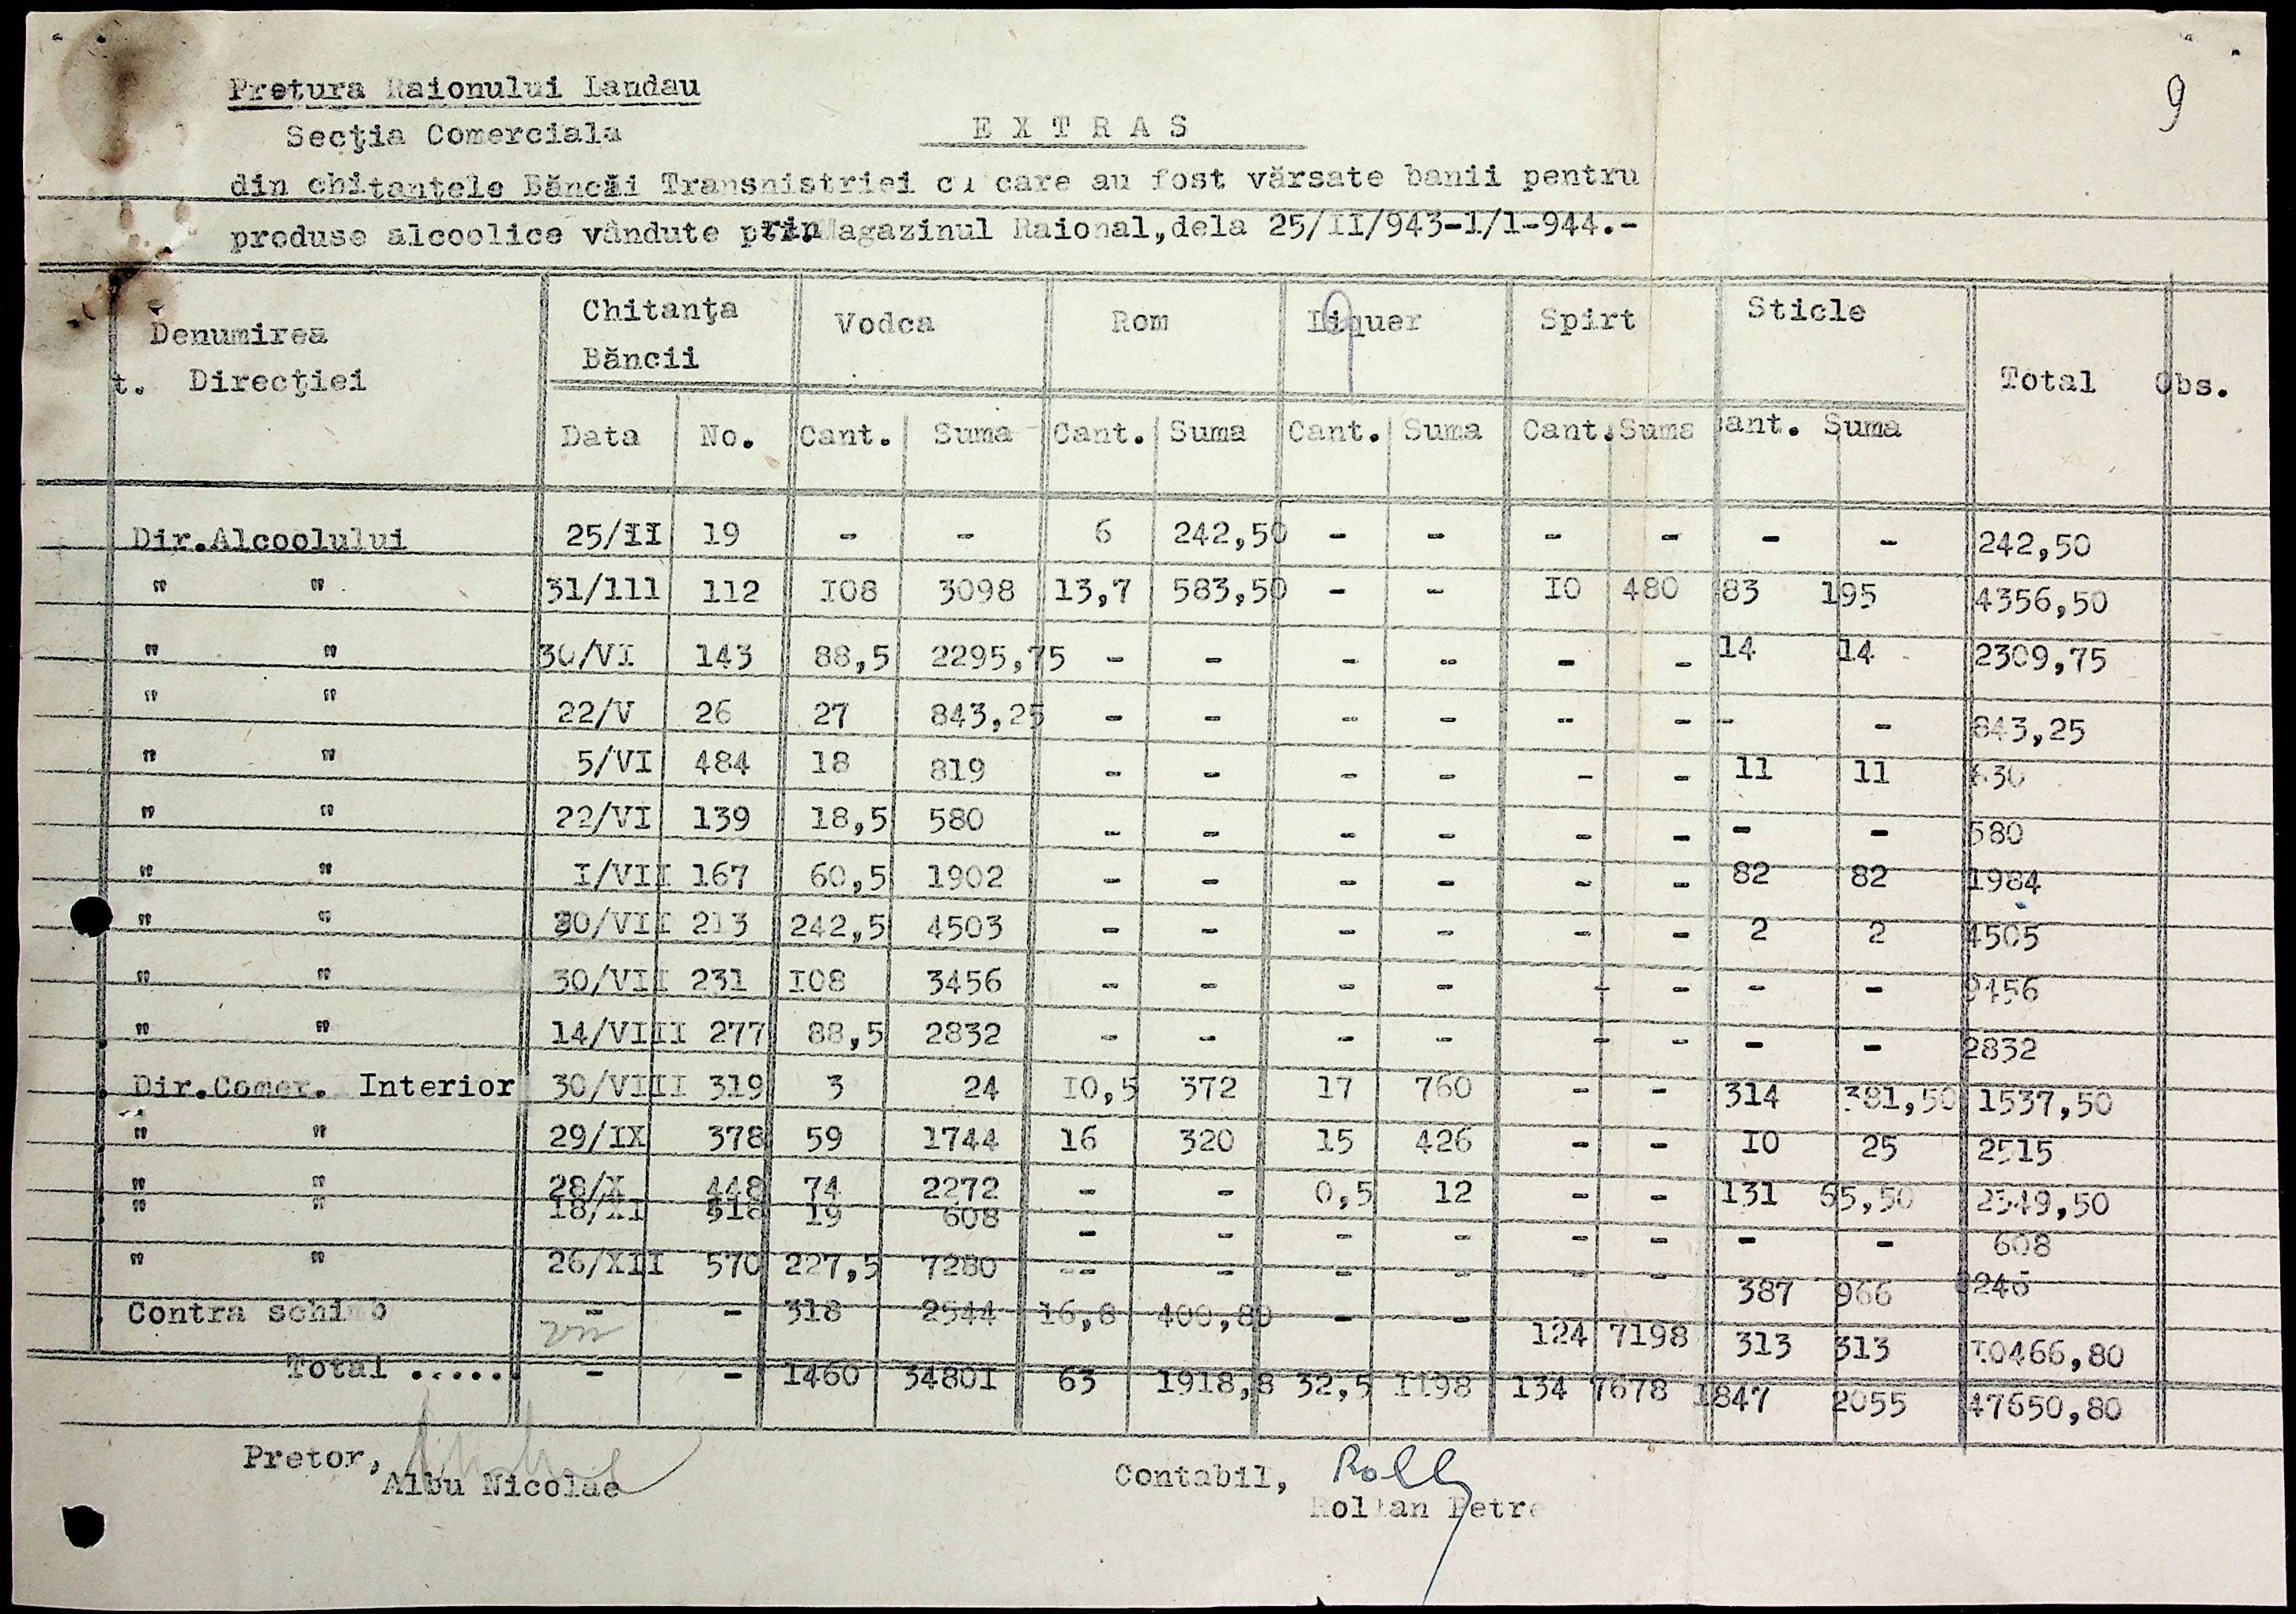 9
Pretura Raionului Landau
Secţia Comerciala
E X T R A S
din chitanţele Băncăi Transnistriei cu care au fost vărsate banii pentru
produse alcoolice vândute prin Magazinul Raional,dela 25/II/943-1/1-944.-
Denumirea Chitanţa Vodca Rom Liquer Spirt Sticle
t. Direcţiei Băncii Total Obs.
Data No. Cant. Suma Cant. Suma Cant. Suma Cant. Suma Cant. Suma
Dir.Alcoolului 25/II 19 - - 6 242,50 - - - - - - 242,50
" " 31/111 112 I08 3098 13,7 583,50 - - I0 480 83 195 4356,50
" " 30/VI 143 88,5 2295,75 - - - - - - 14 14 2309,75
" " 22/V 26 27 843,25 - - - - - - - - 843,25
" " 5/VI 484 18 819 - - - - - - 11 11 830
" " 22/VI 139 18,5 580 - - - - - - - - 580
" " I/VII 167 60,5 1902 - - - - - - 82 82 1984
" " 30/VII 213 242,5 4503 - - - - - - 2 2 4505
" " 30/VII 231 I08 3456 - - - - - - - -
" " 14/VIII 277 88,5 2832 - - - - - - - - 2832
Dir.Comer. Interior 30/VIII 319 3 24 I0,5 372 17 760 - - 314 381,50 1537,50
" " 29/IX 378 59 1744 16 320 15 426 - - I0 25 2515
" " 28/X 448 74 2272 - - 0,5 12 - - 131 65,50 2349,50
" " 18/XI 518 19 608 - - - - - - - - 608
" " 26/XII 570 227,5 7280 -- - - - - - 387 966 8246
Contra schimb - - 318 2544 16,8 400,80 - - 124 7198 313 313 I0466,80
Total ..... - - 1460 34801 63 1918,8 32,5 1198 134 7678 1847 2055 47650,80
Pretor,
Albu Nicolae
Contabil, Rolly
Roltan Petre